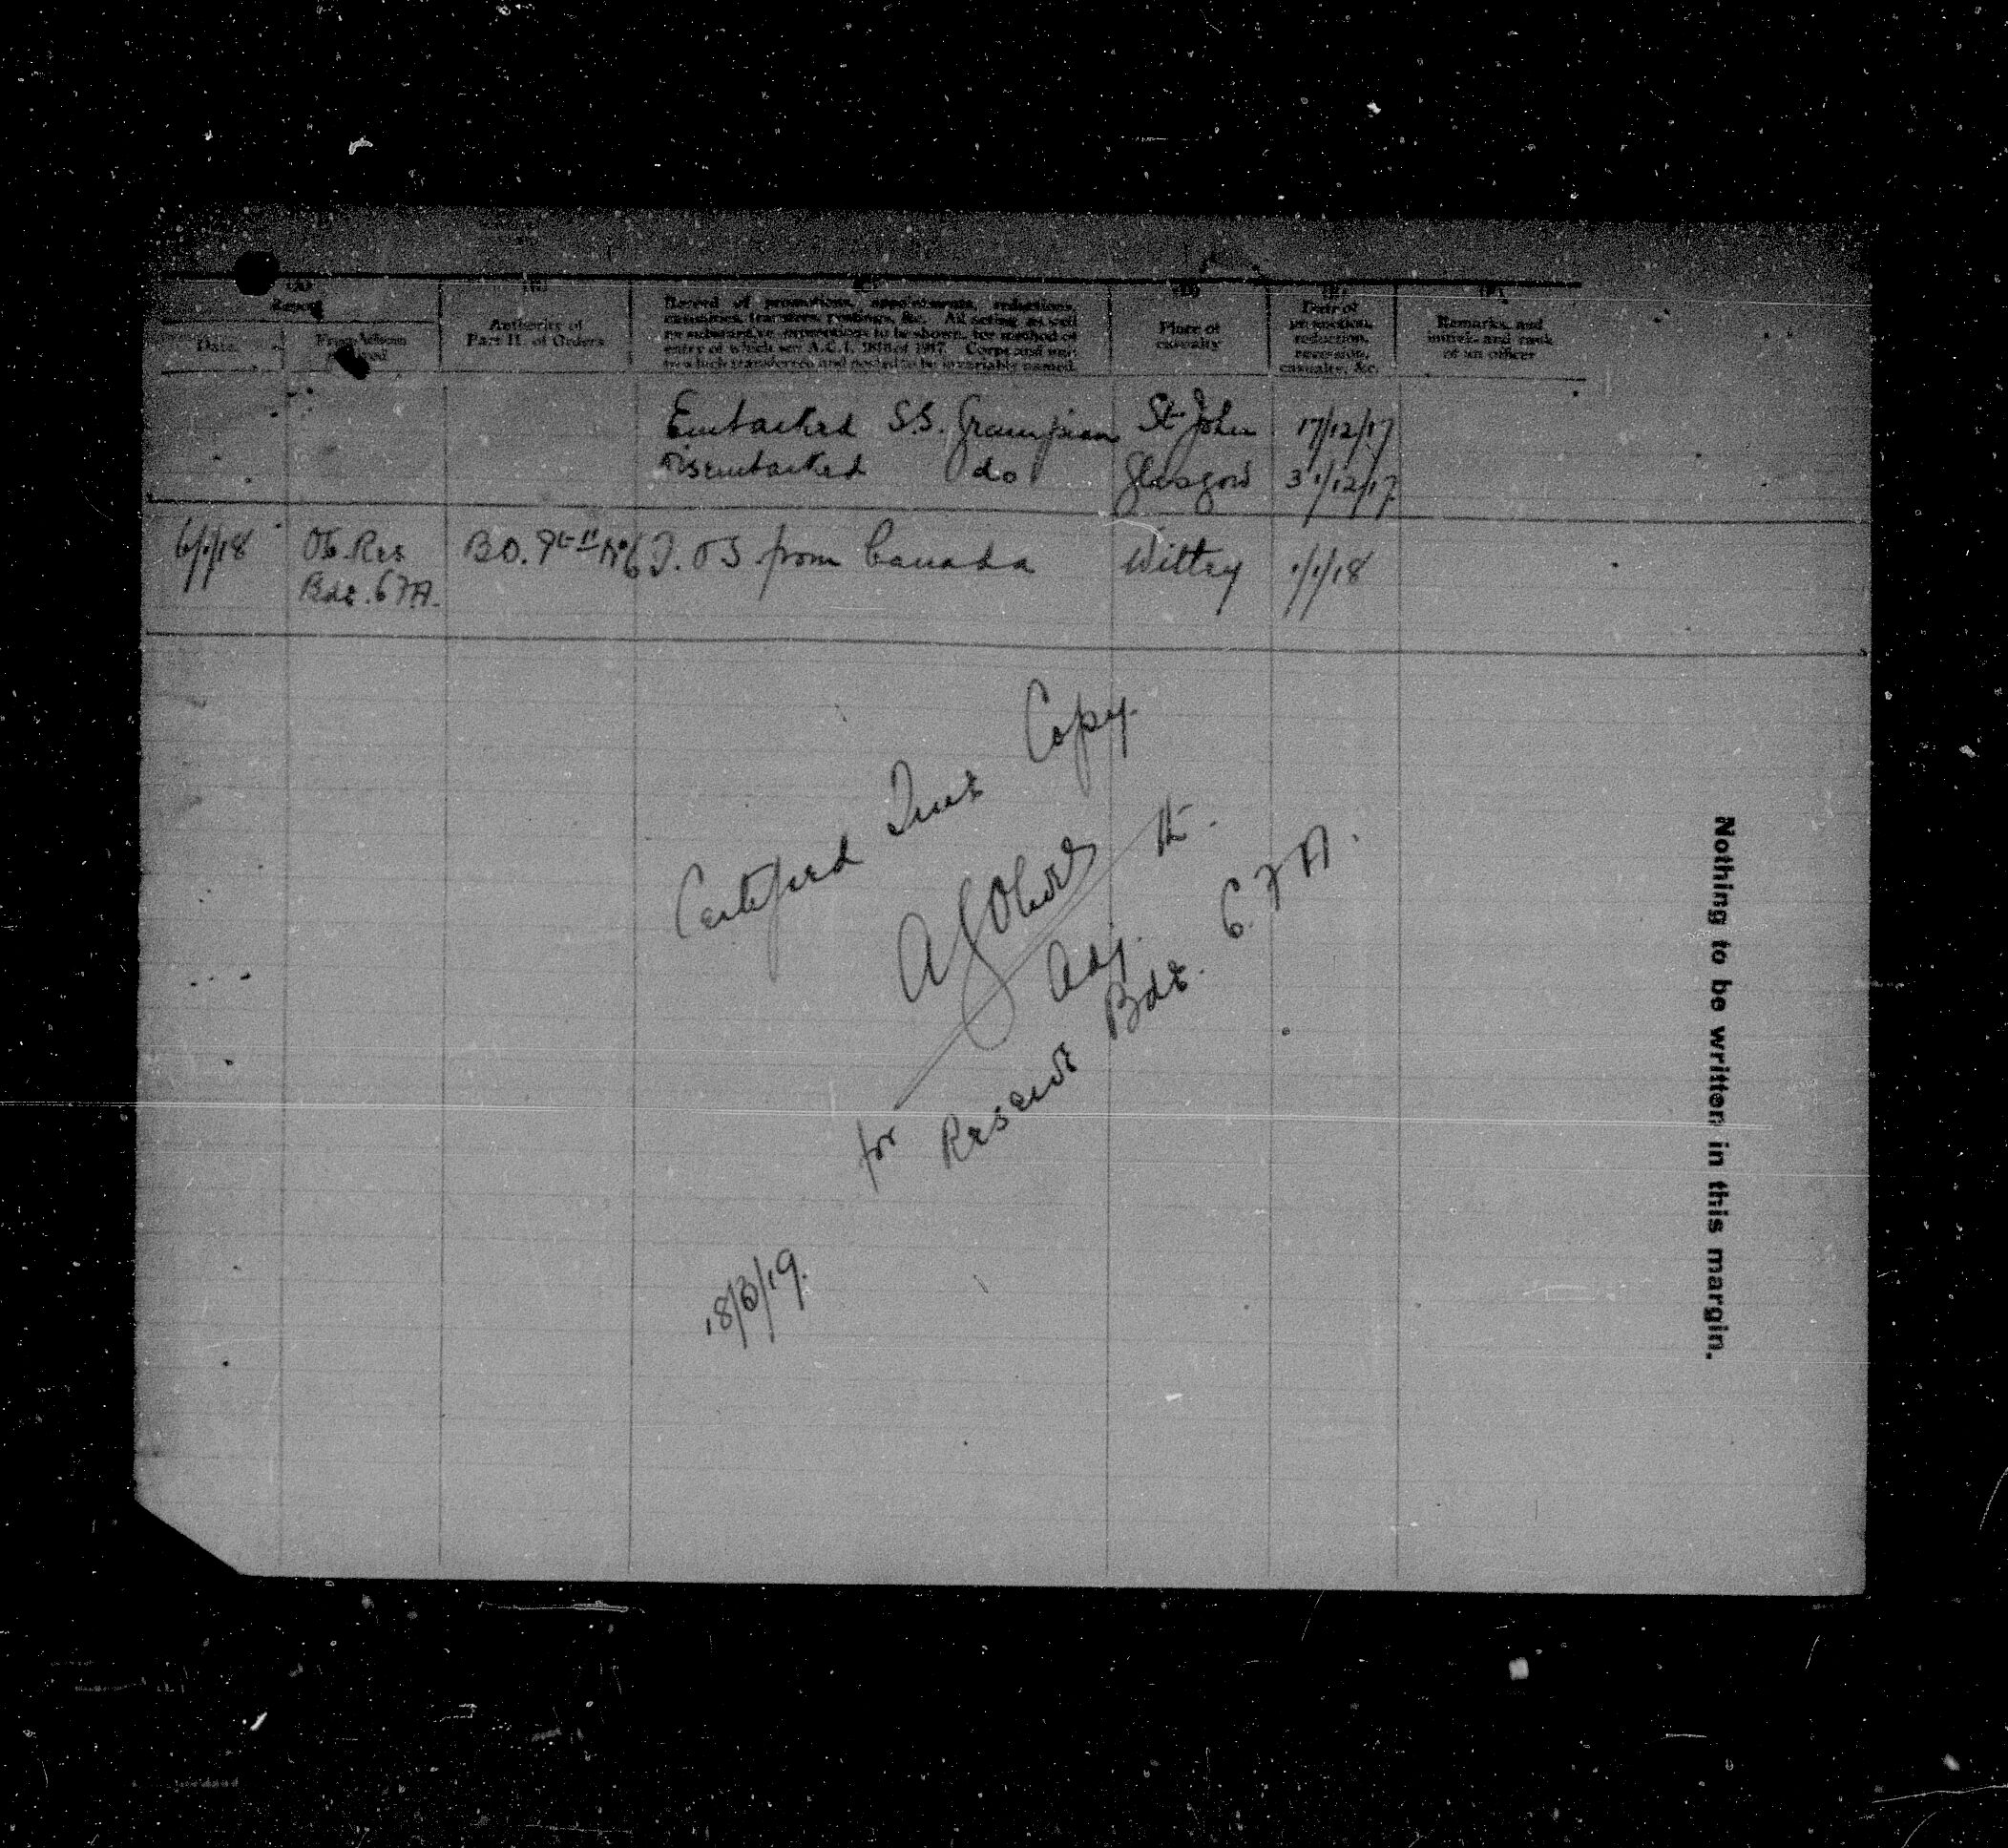 (A)
Report
(B)
(C)
(D)
(E)
(F)
Date.
From whom
received
Authority of
Part II. of Orders
Record of promotions, appointments, reductions,
casualties, transfers, postings, &c. All acting as well
as substantive promotions to be shown, for method of
entry of which see A.C.I. 1816 of 1917. Corps and unit
to which transferred and posted to be invariably named.
Place of
casualty
Date of
promotion,
reduction,
reversion,
casualty, &c.
Remarks, and
initials and rank
of an officer
Embarked S.S. Grampian St John 17/12/17
Disembarked do Glasgow 31/12/17
6/1/18 OC. Res B.O. Pt II No 6 T.O.S. from Canada Witley 1/1/18
Bde. C F A.
Certified True Copy.
Lt.
Adj.
for Reserve Bde. C F A.
18/3/19.
Nothing to be written in this margin.